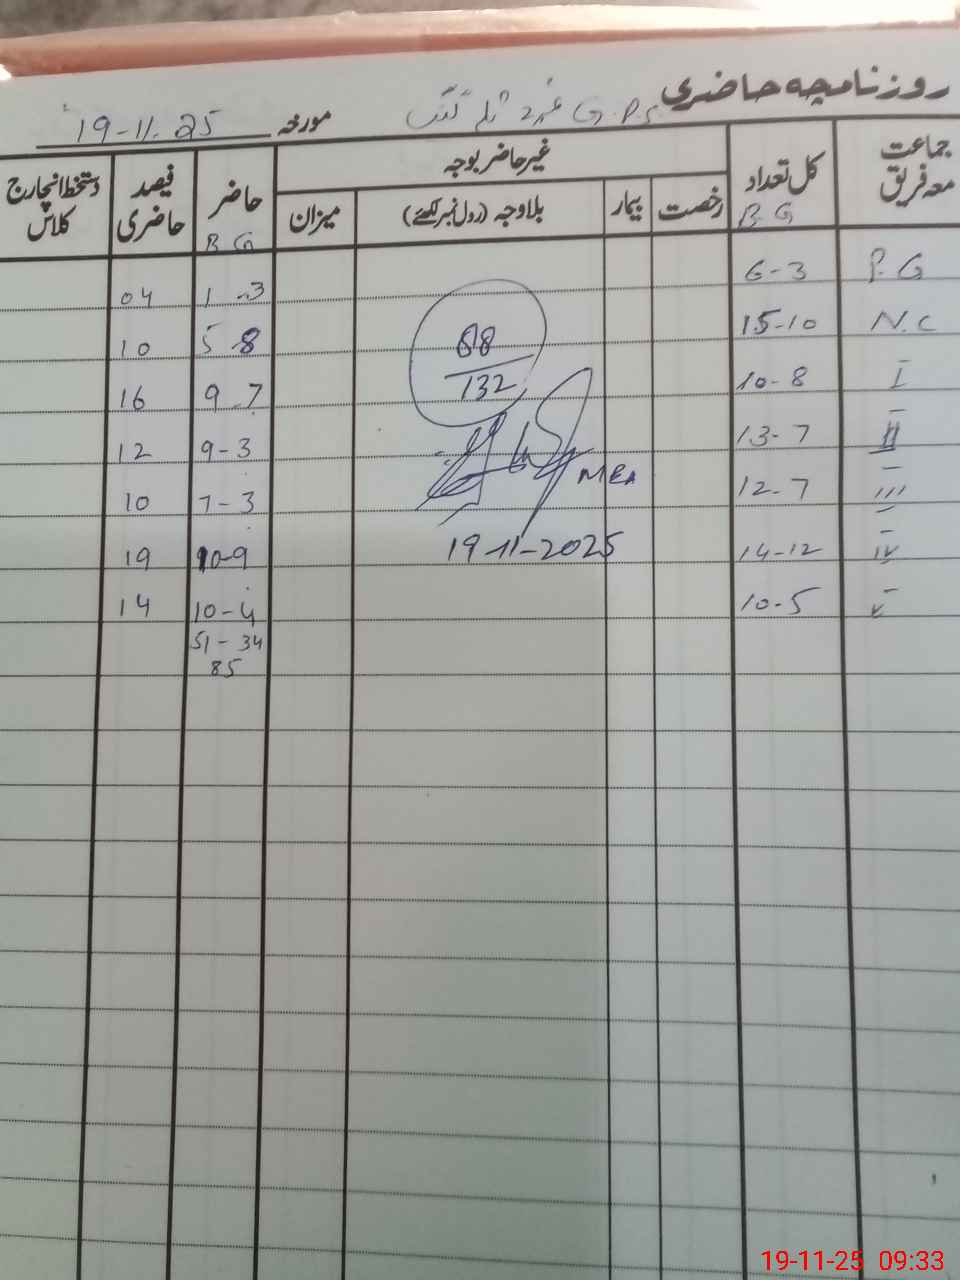 روزنامچہ حاضری G.P.S
مورخہ 19-11-25
جماعت معہ فریق | کل تعداد B G | غیر حاضر بوجہ | رخصت | بیمار | بلاوجہ (رول نمبر لکھئے) | میزان | حاضر B G | فیصد حاضری | دستخط انچارج کلاس
P.G | 6-3 | 1-3 | 04
N.C | 15-10 | 5-8 | 10
I | 10-8 | 9-7 | 16
II | 13-7 | 9-3 | 12
III | 12-7 | 7-3 | 10
IV | 14-12 | 10-9 | 19
V | 10-5 | 10-4 | 14
51-34
85
88
132
MEA
19-11-2025
19-11-25 09:33